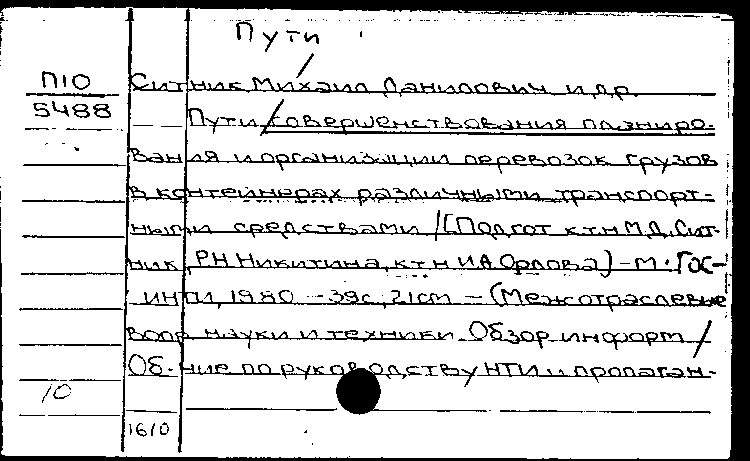 Пути
П10
5488
Ситник Михаил Данилович и др.
Пути совершенствования планиро-
вания и организации перевозок грузов
в контейнерах различными транспорт-
ными средствами / [Подгот к.т.н М.Д. Сит-
ник, Р.Н. Никитина, к.т.н И.А. Орлова] - М: ГОС-
ИНТИ, 1980 - 39с, 21см - (Межотраслевые
вопр науки и техники. Обзор. информ /
Об-ние по руководству НТИ и пропаган-
10
1610